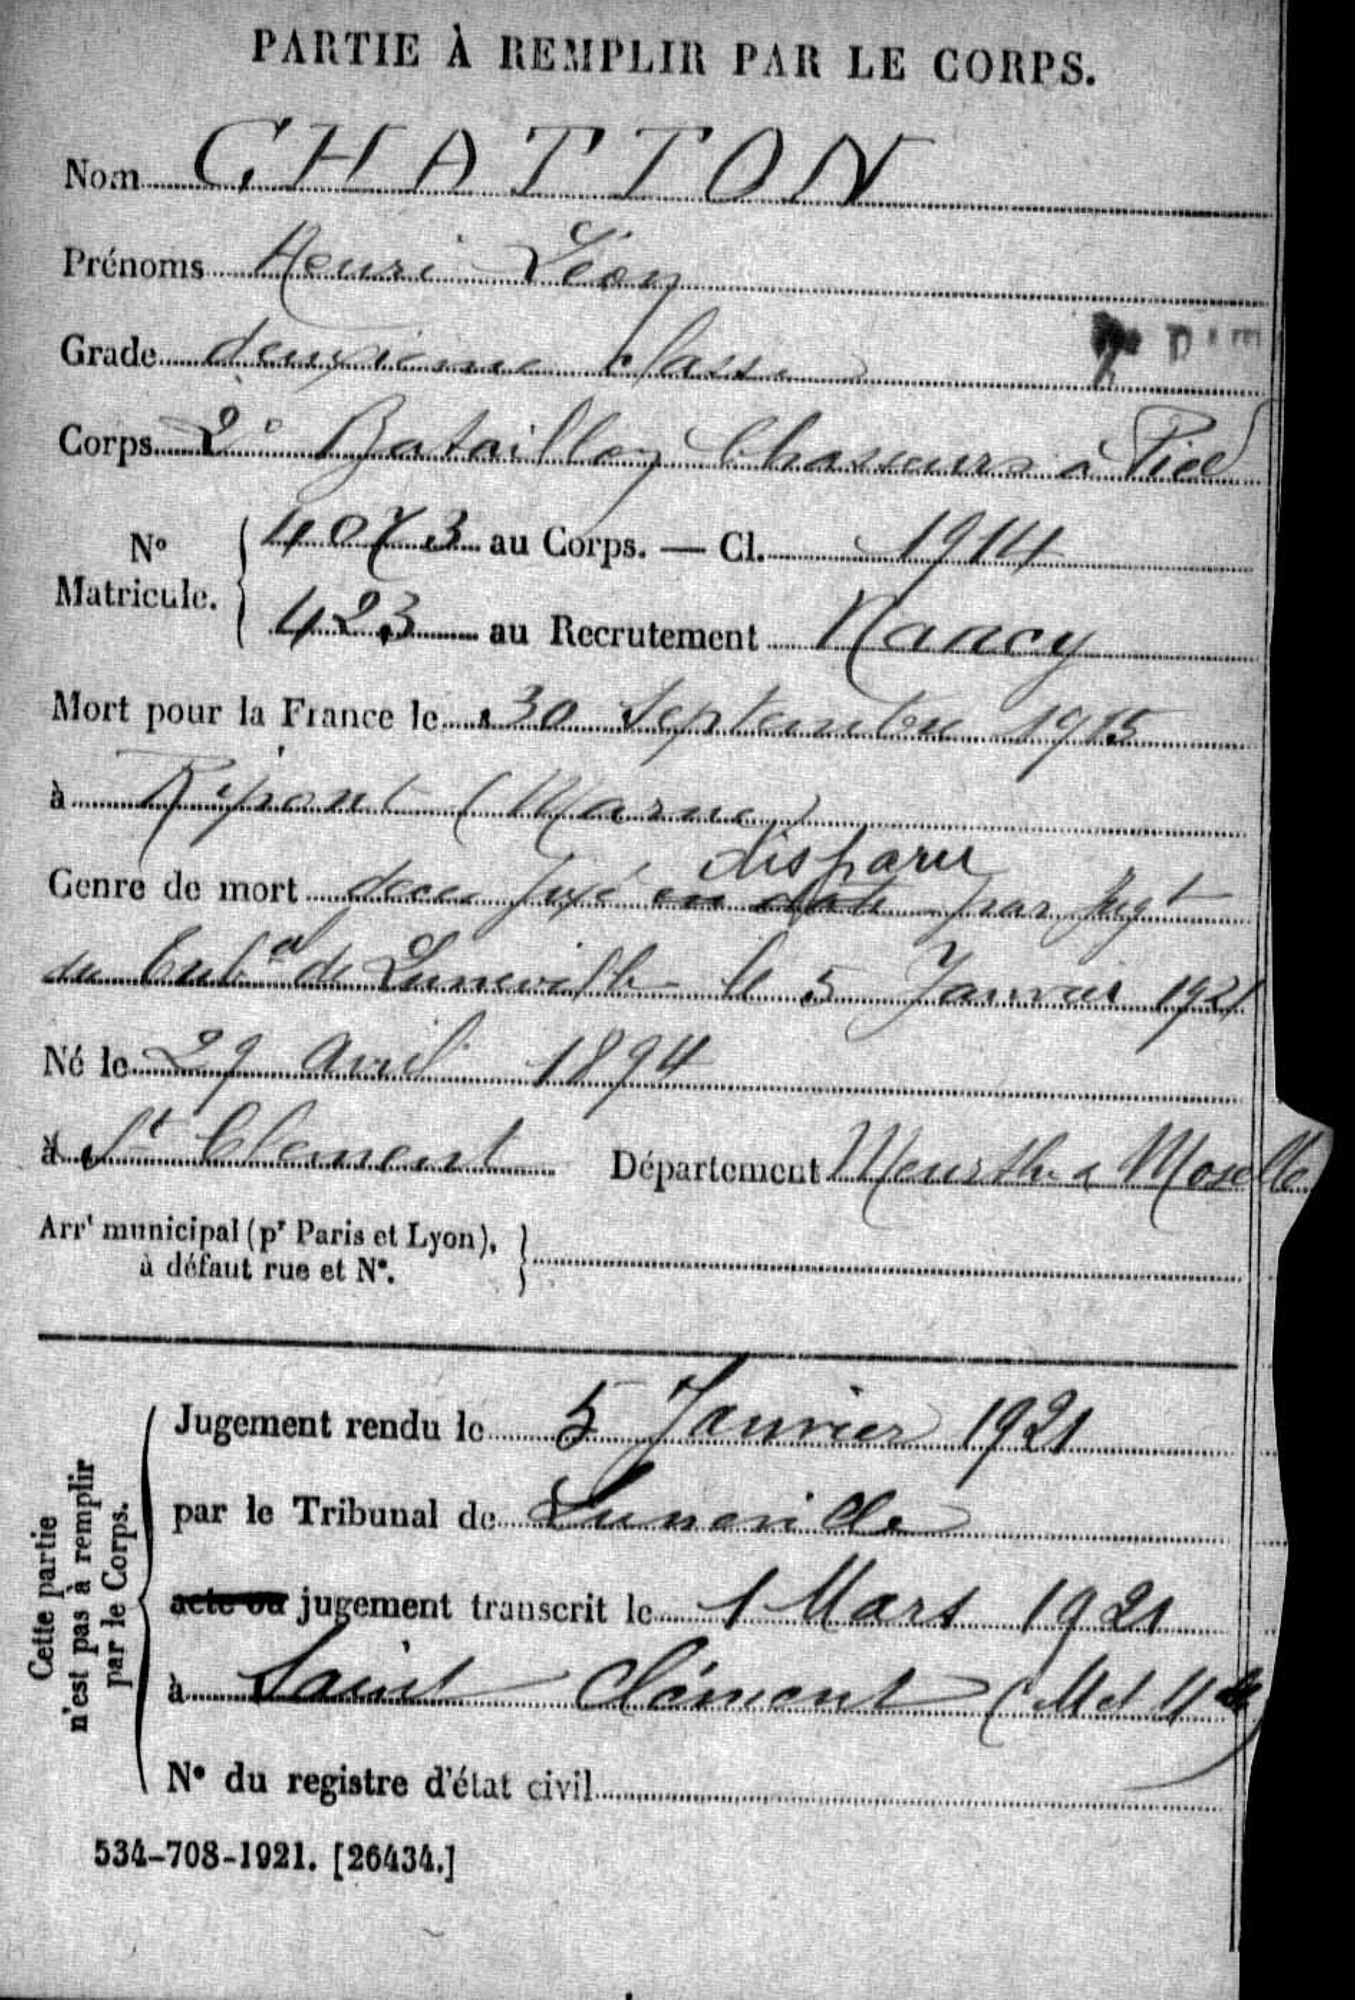 PARTIE À REMPLIR PAR LE CORPS.
Nom CHATTON
Prénoms Henri Léon
Grade deuxième classe
Corps 2e Bataillon Chasseurs à Pied
No Matricule. { 4073 au Corps. — Cl. 1914
423 au Recrutement Nancy
Mort pour la France le 30 Septembre 1915
à Ripont (Marne)
disparu
Genre de mort deces fixé en date par Jugt
du Tribal de Luneville le 5 Janvier 1921
Né le 29 Avril 1894
à St Clement Département Meurthe & Moselle
Arrt municipal (pr Paris et Lyon),
à défaut rue et No.
Cette partie n'est pas à remplir par le Corps.
Jugement rendu le 5 Janvier 1921
par le Tribunal de Luneville
acte ou jugement transcrit le 1 Mars 1921
à Saint Clément (M et Mlle)
No du registre d'état civil
534-708-1921. [26434.]